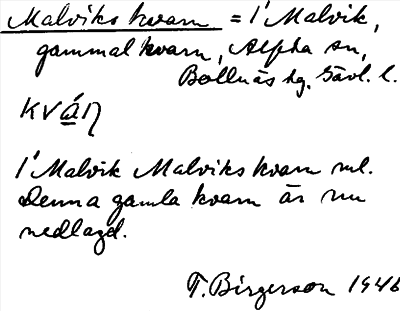 Malviks kvarn = i Malvik,
gammal kvarn, Alpha sn,
Bollnäs hg. Gävl. l.
kvạ́ṇ
I Malvik Malviks kvarn ml.
Denna gamla kvarn är nu
nedlagd.
T. Birgerson 1946